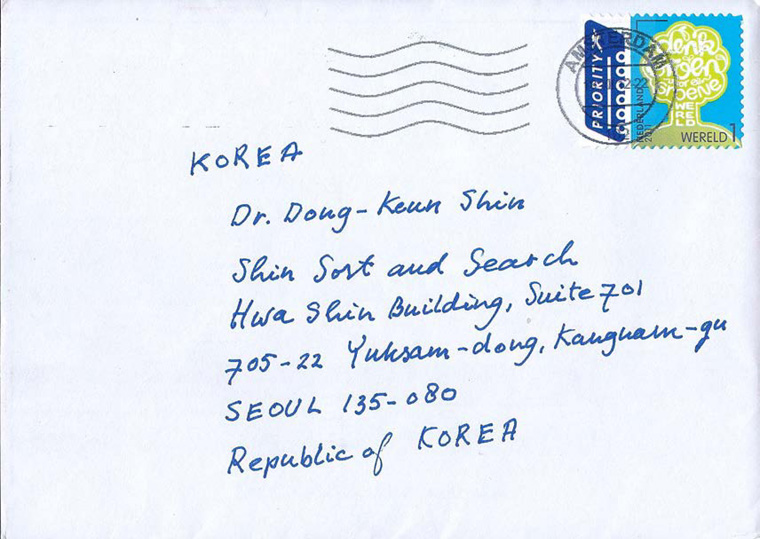 AMSTERDAM
PRIORITY
NEDERLAND
2011
denk
groen
groene
WE
RE
LD
WERELD 1
KOREA
Dr. Dong-Keun Shin
Shin Sort and Search
Hwa Shin Building, Suite 701
705-22 Yuksam-dong, Kangnam-gu
SEOUL 135-080
Republic of KOREA